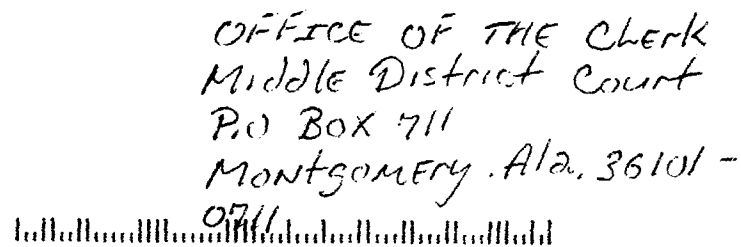 OFFICE OF THE Clerk
Middle District Court
P.O BOX 711
Montgomery. Ala. 36101-
0711